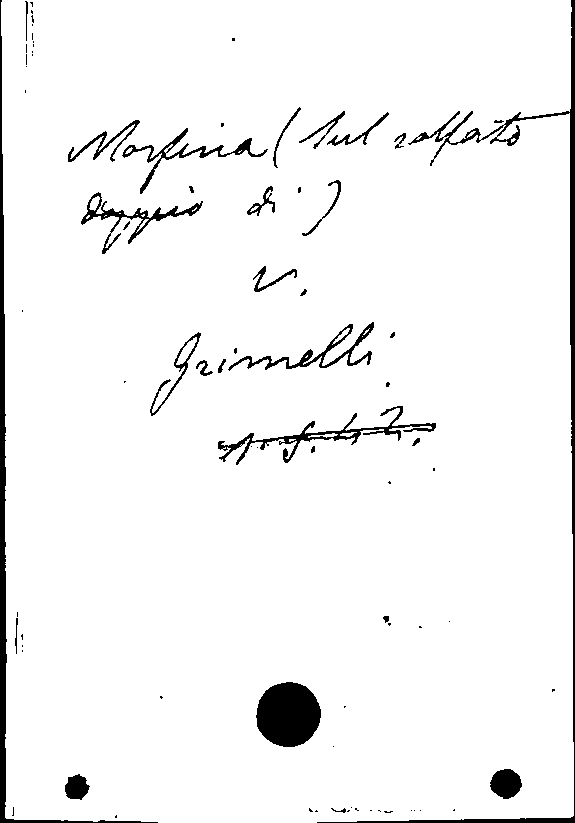 Morfina (Sul solfato
doppio di)
V.
Grimelli